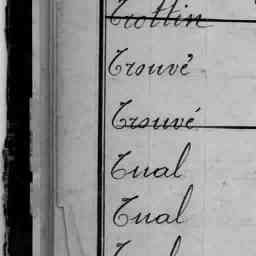 Trottin
Trouvé
Trouvé
Tual
Tual